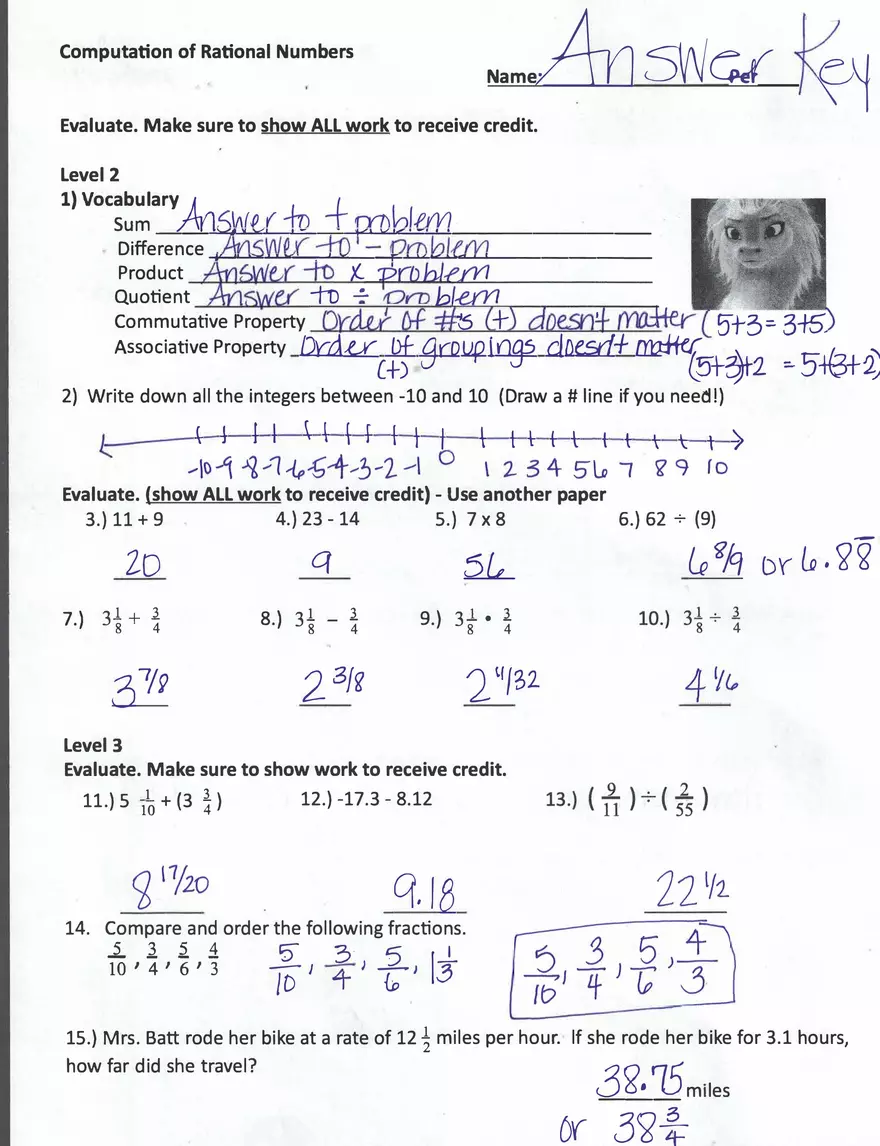 Computation of Rational Numbers
Name: Answer Key Per
Evaluate. Make sure to show ALL work to receive credit.
Level 2
1) Vocabulary
Sum Answer to + problem
Difference Answer to - problem
Product Answer to x problem
Quotient Answer to ÷ problem
Commutative Property Order of #'s (+) doesn't matter (5+3 = 3+5)
Associative Property Order of groupings doesn't matter
(+) (5+3)+2 = 5+(3+2)
2) Write down all the integers between -10 and 10 (Draw a # line if you need!)
-10 -9 -8 -7 -6 -5 -4 -3 -2 -1 0 1 2 3 4 5 6 7 8 9 10
Evaluate. (show ALL work to receive credit) - Use another paper
3.) 11 + 9 4.) 23 - 14 5.) 7 x 8 6.) 62 ÷ (9)
20 9 56 6 8/9 or 6.88̅
7.) 3 1/8 + 3/4 8.) 3 1/8 - 3/4 9.) 3 1/8 • 3/4 10.) 3 1/8 ÷ 3/4
3 7/8 2 3/8 2 11/32 4 1/6
Level 3
Evaluate. Make sure to show work to receive credit.
11.) 5 1/10 + (3 3/4) 12.) -17.3 - 8.12 13.) (9/11) ÷ (2/55)
8 17/20 9.18 22 1/2
14. Compare and order the following fractions.
5/10, 3/4, 5/6, 4/3 5/10, 3/4, 5/6, 1 1/3 5/10, 3/4, 5/6, 4/3
15.) Mrs. Batt rode her bike at a rate of 12 1/2 miles per hour. If she rode her bike for 3.1 hours,
how far did she travel?
38.75 miles
or 38 3/4